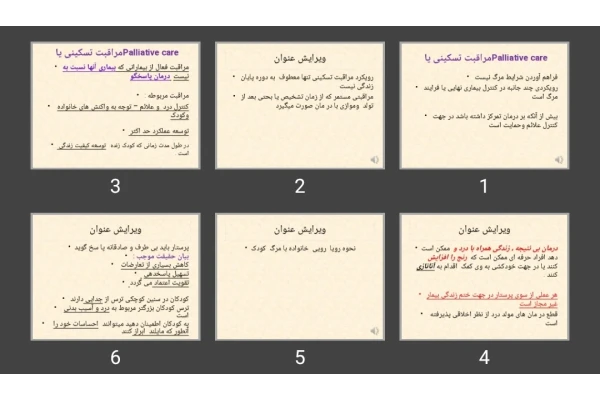 Palliative careمراقبت تسکینی یا
فراهم آوردن شرایط مرگ نیست
رویکردی چند جانبه در کنترل بیماری نهایی یا فرایند
مرگ است
بیش از آنکه بر درمان تمرکز داشته باشد در جهت
کنترل علائم وحمایت است
1
ویرایش عنوان
رویکرد مراقبت تسکینی تنها معطوف به دوره پایان
زندگی نیست
مراقبتی مستمر که از زمان تشخیص یا بحتی بعد از
تولد وموازی با در مان صورت میگیرد
2
Palliative careمراقبت تسکینی یا
مراقبت فعال از بیمارانی که بیماری آنها نسبت به
درمان پاسخگو نیست
مراقبت مربوطه
کنترل درد و علائم – توجه به واکنش های خانواده
وکودک
توسعه عملکرد حد اکثر
در طول مدت زمانی که کودک زنده توسعه کیفیت زندگی
است
3
ویرایش عنوان
درمان بی نتیجه , زندگی همراه با درد و ممکن است
دهد افراد حرفه ای ممکن است که رنج را افزایش
کنند یا در جهت خودکشی به وی کمک اقدام به اتانازی
کنند
هر عملی از سوی پرستار در جهت ختم زندگی بیمار
غیر مجاز است
قطع در مان های مولد درد از نظر اخلاقی پذیرفته
است
4
ویرایش عنوان
نحوه رویا رویی خانواده با مرگ کودک
5
ویرایش عنوان
پرستار باید بی طرف و صادقانه پا سخ گوید
بیان حقیقت موجب :
کاهش بسیاری از تعارضات
تسهیل پاسخدهی
تقویت اعتماد می گردد
کودکان در سنین کوچکی ترس از جدایی دارند
ترس کودکان بزرگتر مربوط به درد و آسیب بدنی
است
به کودکان اطمینان دهید میتوانند احساسات خود را
آنطور که مایلند ابراز کنند
6